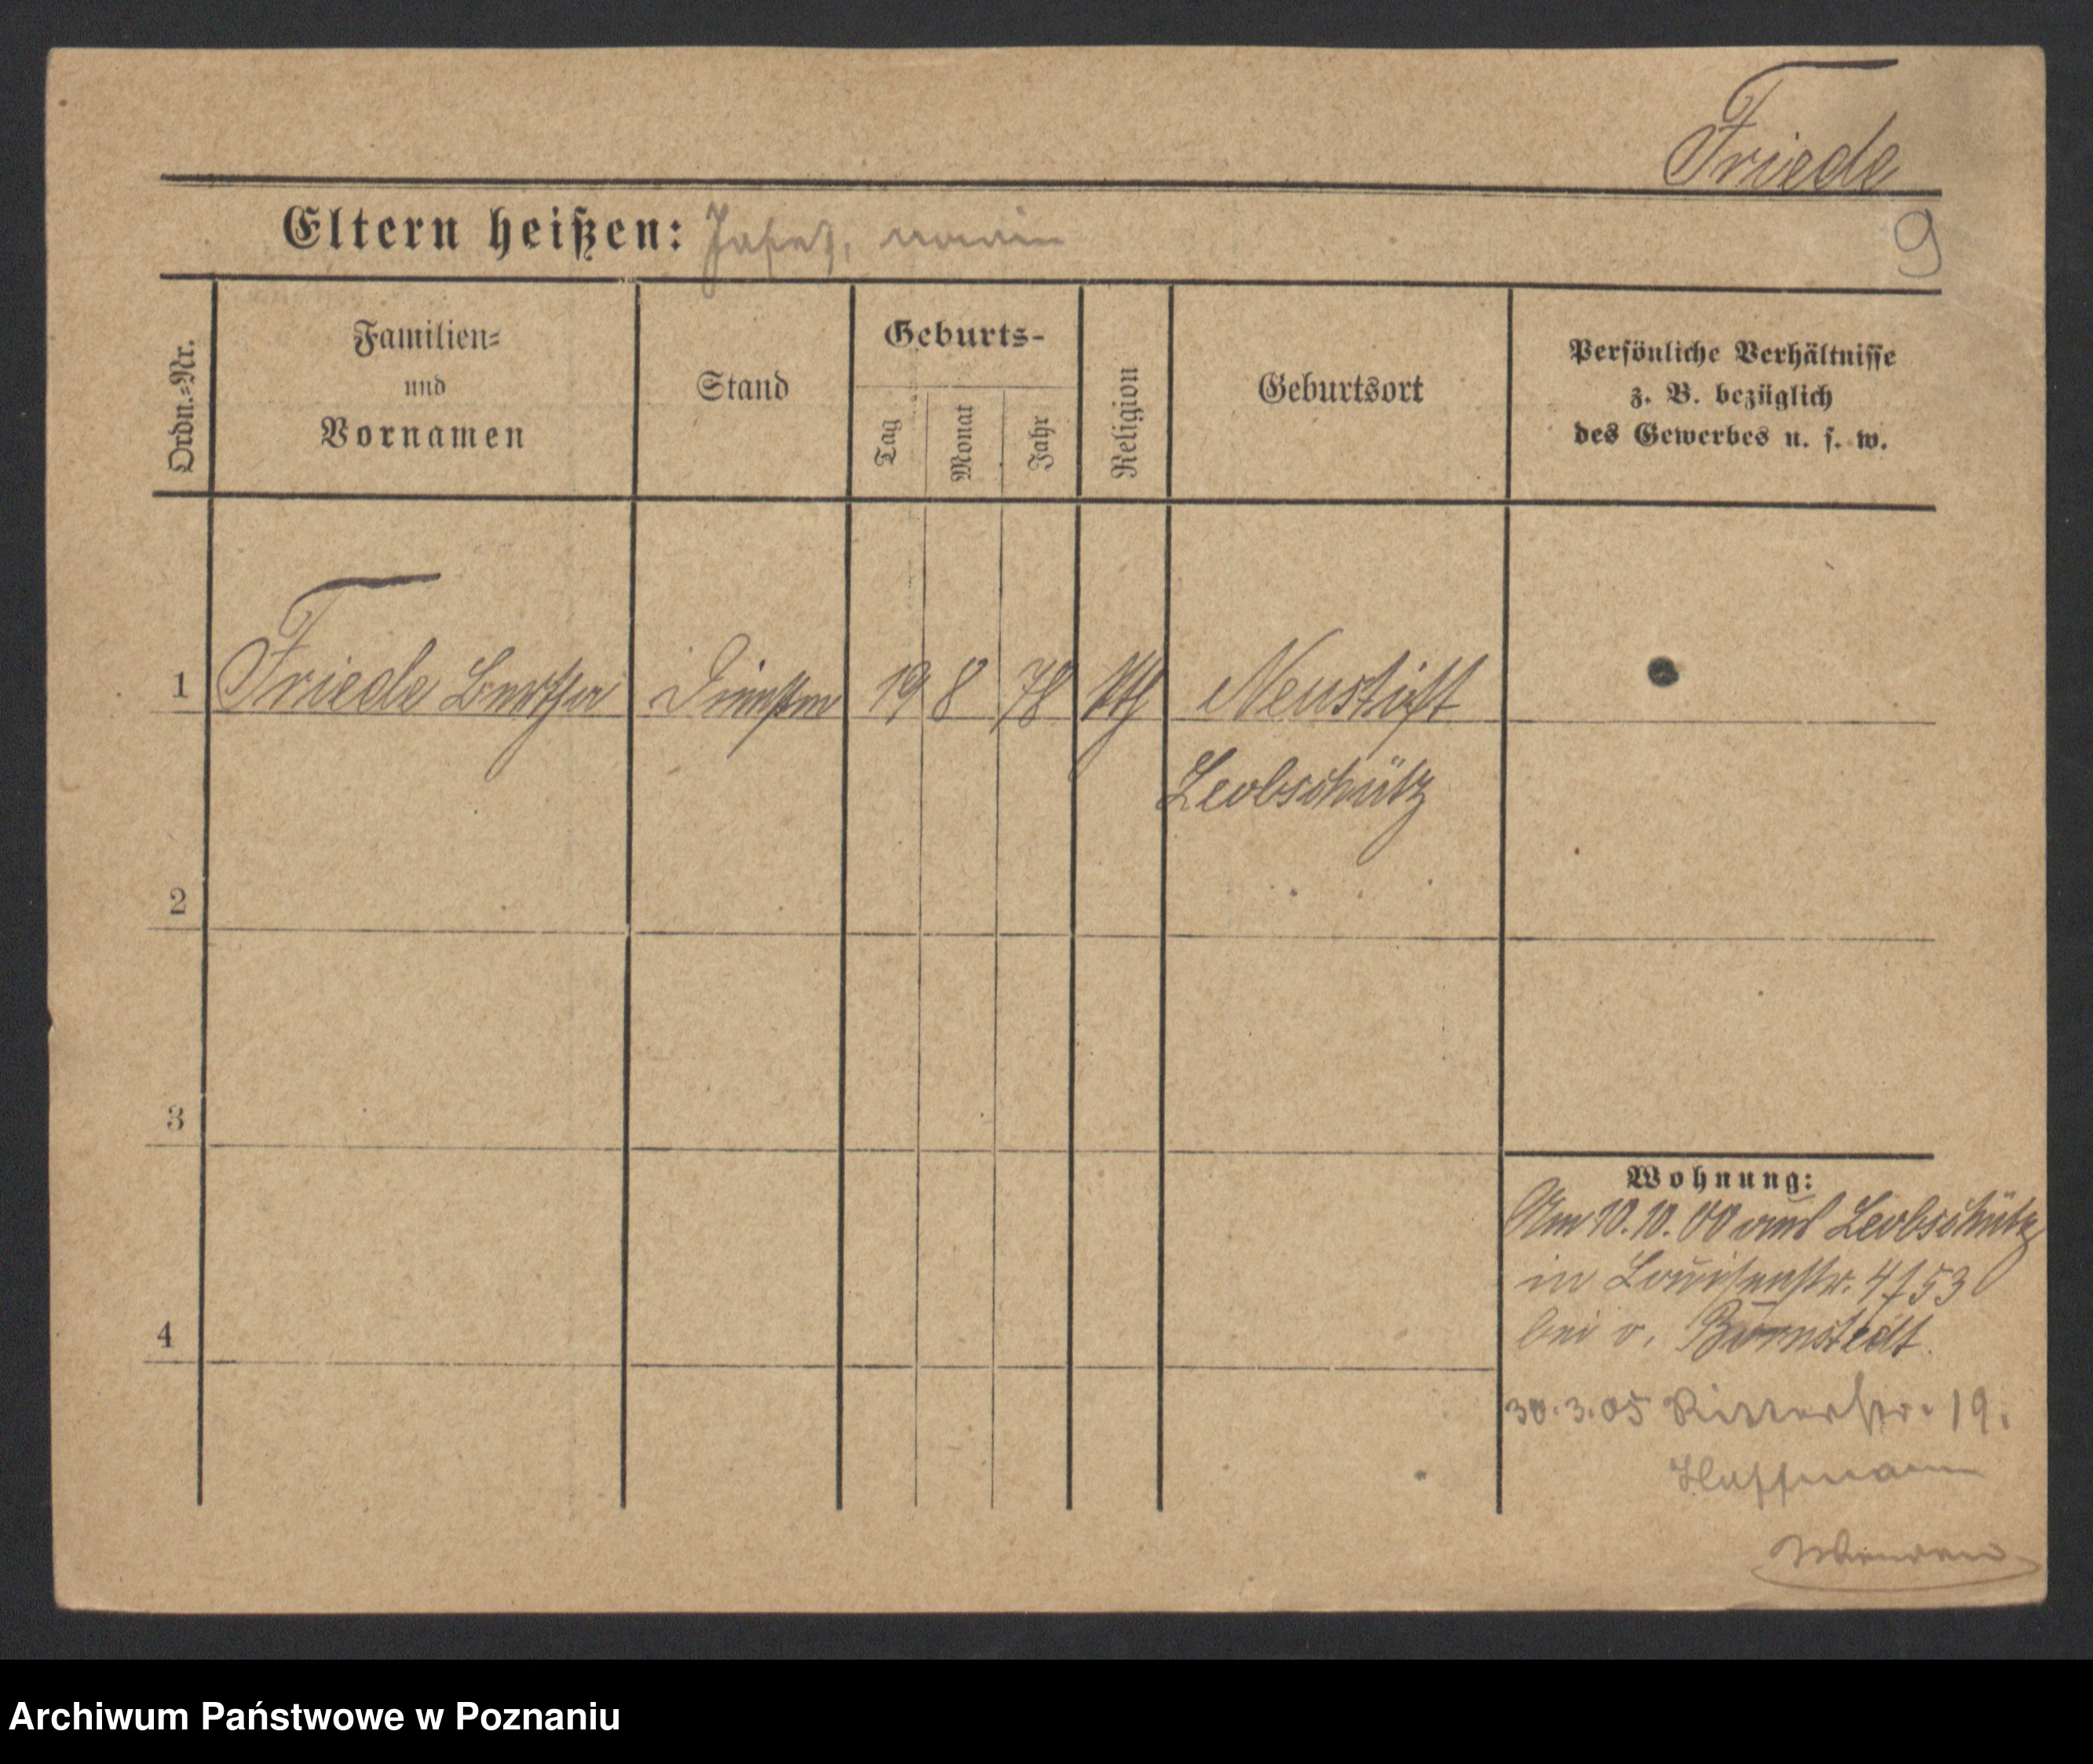 Friede
9
Eltern heißen: Josef,
Ordn.=Nr.
Familien=
und
Vornamen
Stand
Geburts-
Tag
Monat
Jahr
Religion
Geburtsort
Persönliche Verhältnisse
z. B. bezüglich
des Gewerbes u. s. w.
1 Friede Bertha 19 8 78 kth Neustift
Leobschütz
2
3
4
Wohnung:
Am 10.10.00 aus Leobschütz
in Louisenstr. 4
bei v. Bornstedt.
30.3.05 Ritterstr. 19.
Hoffmann
Archiwum Państwowe w Poznaniu